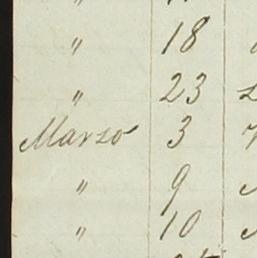 " 18
" 23
Marzo 3
" 9
" 10